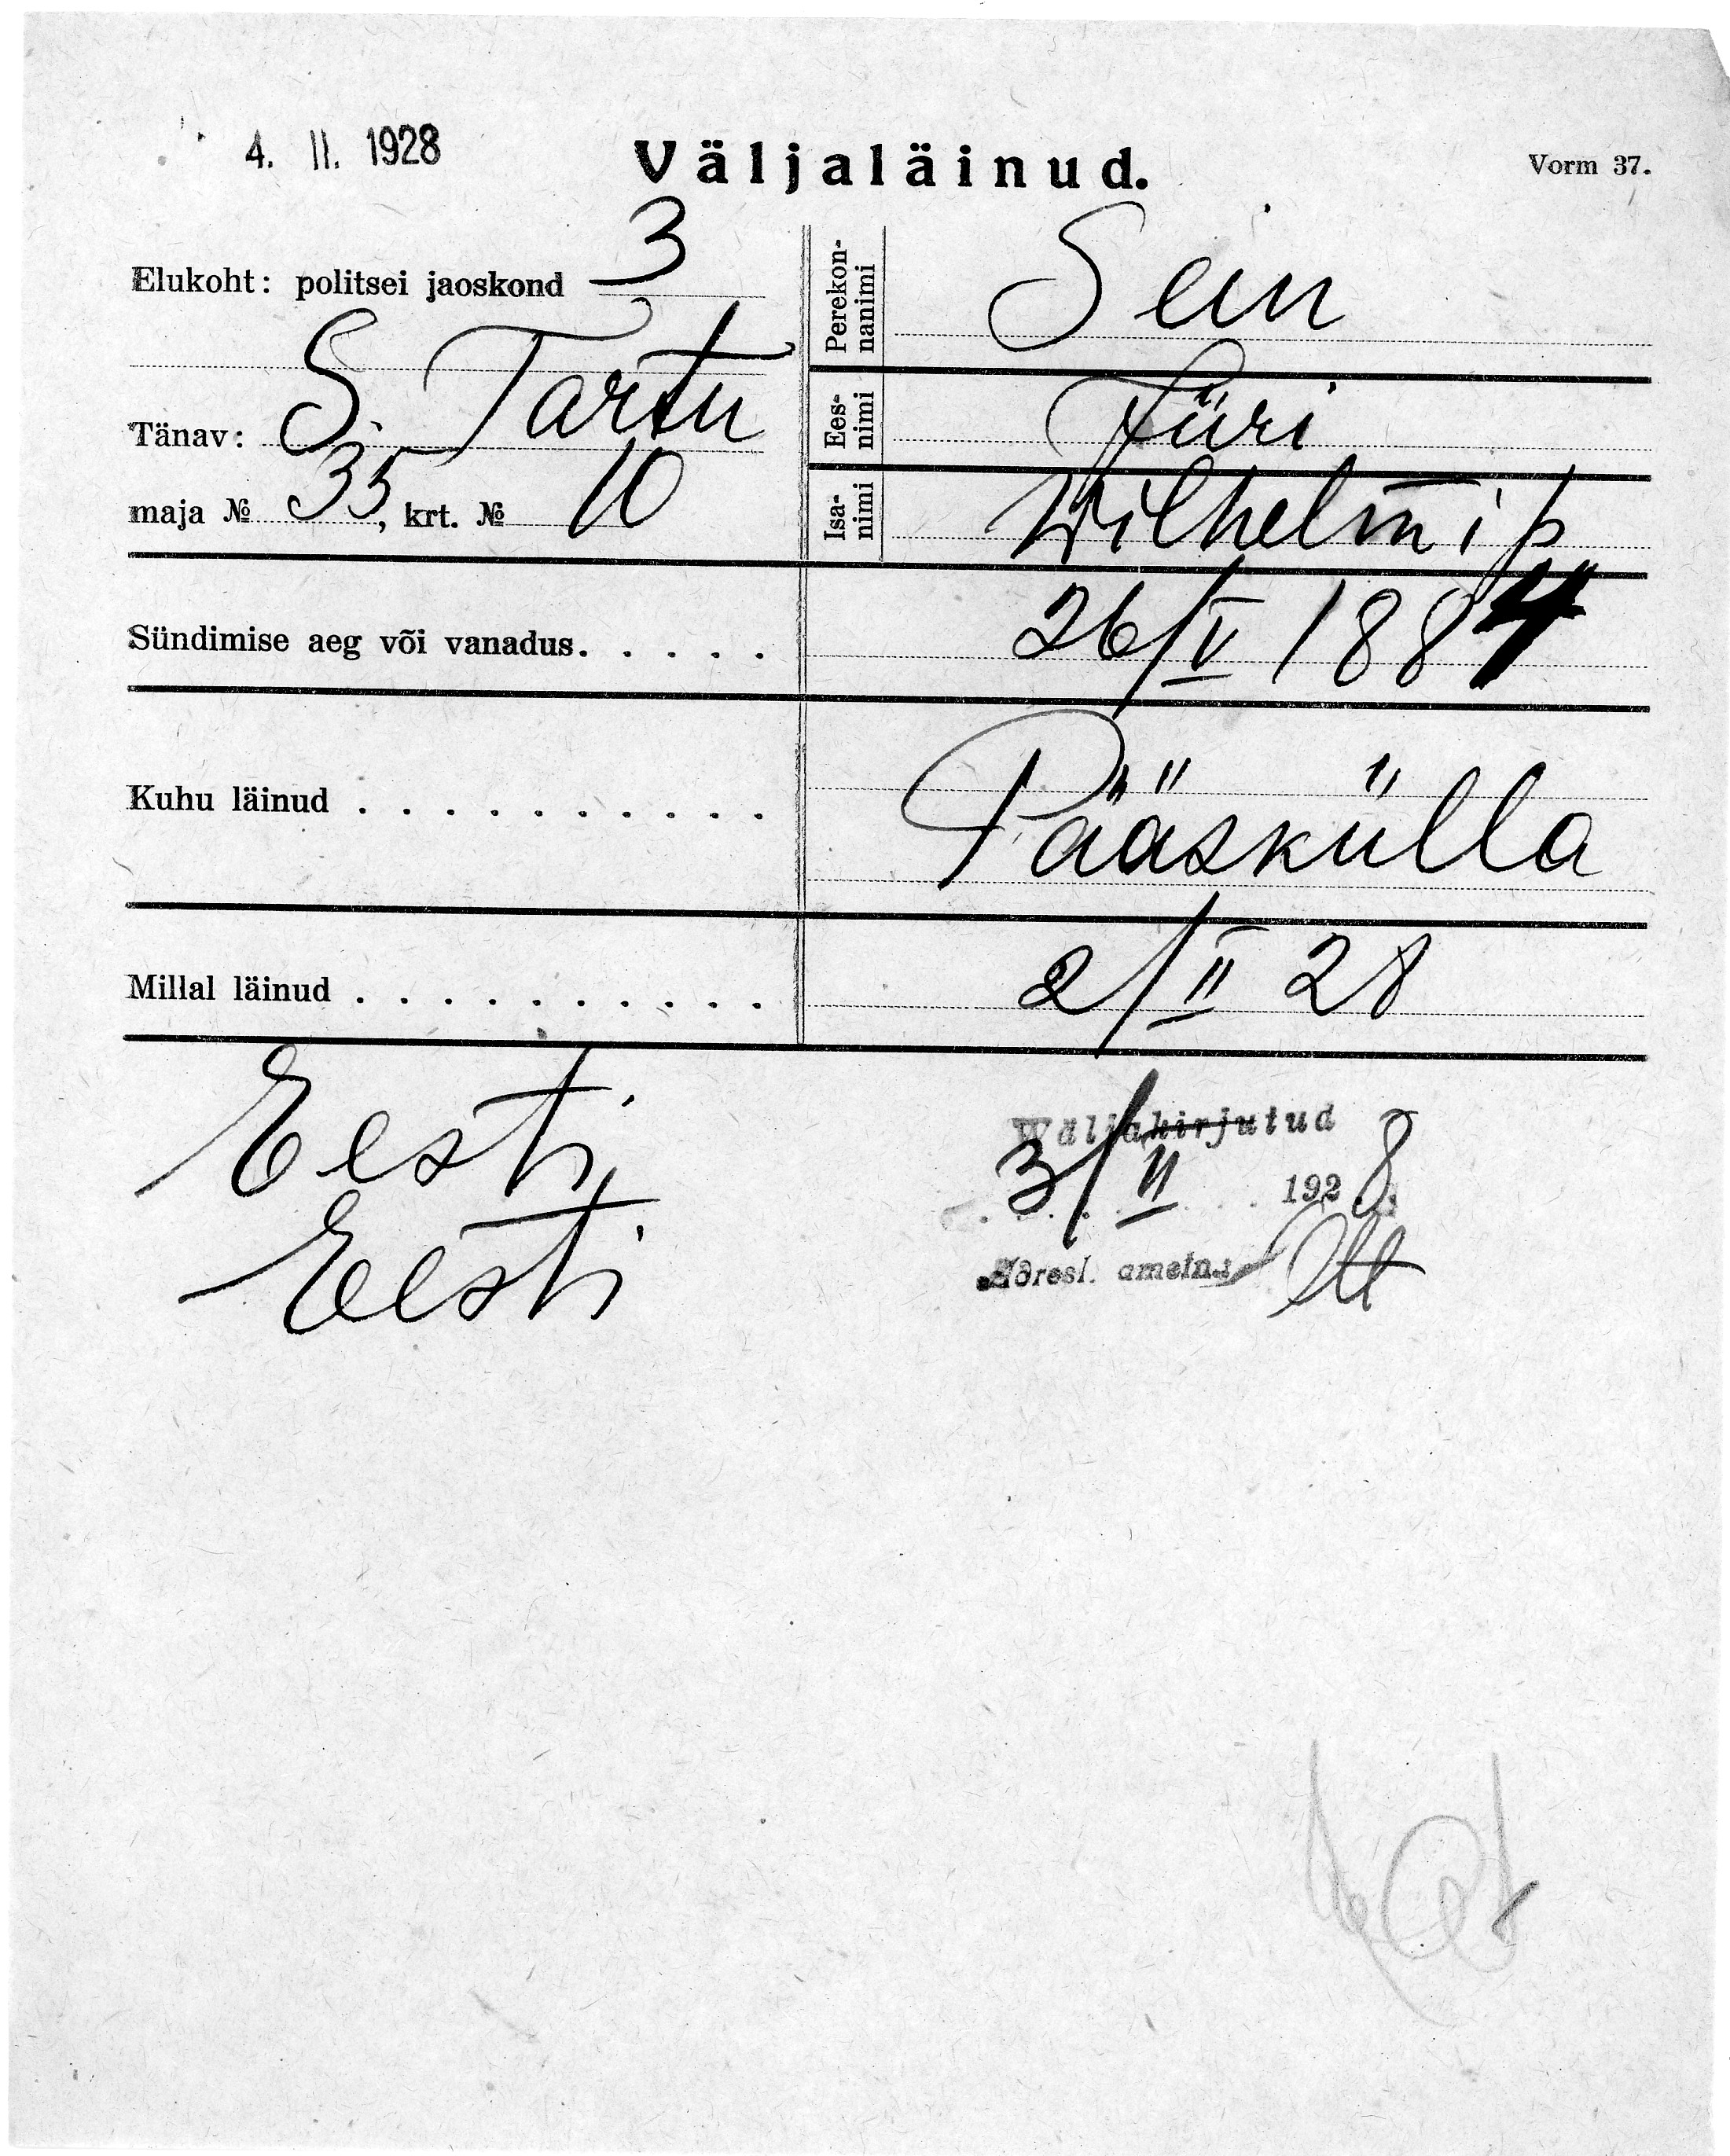 4. II. 1928
Väljaläinud.
Vorm 37.
Elukoht: politsei jaoskond 3
Tänav: S. Tartu
maja № 35, krt. № 10
Perekon-
nanimi
Sein
Ees-
nimi
Jüri
Isa-
nimi
Wilhelmi p.
Sündimise aeg või vanadus. . . . .
26/V 1884
Kuhu läinud . . . . . . . . . .
Pääskülla
Millal läinud . . . . . . . . . .
2/II 28
Eesti
Eesti
Wäljakirjutud
3/II 1928
Adresl. ametn.: